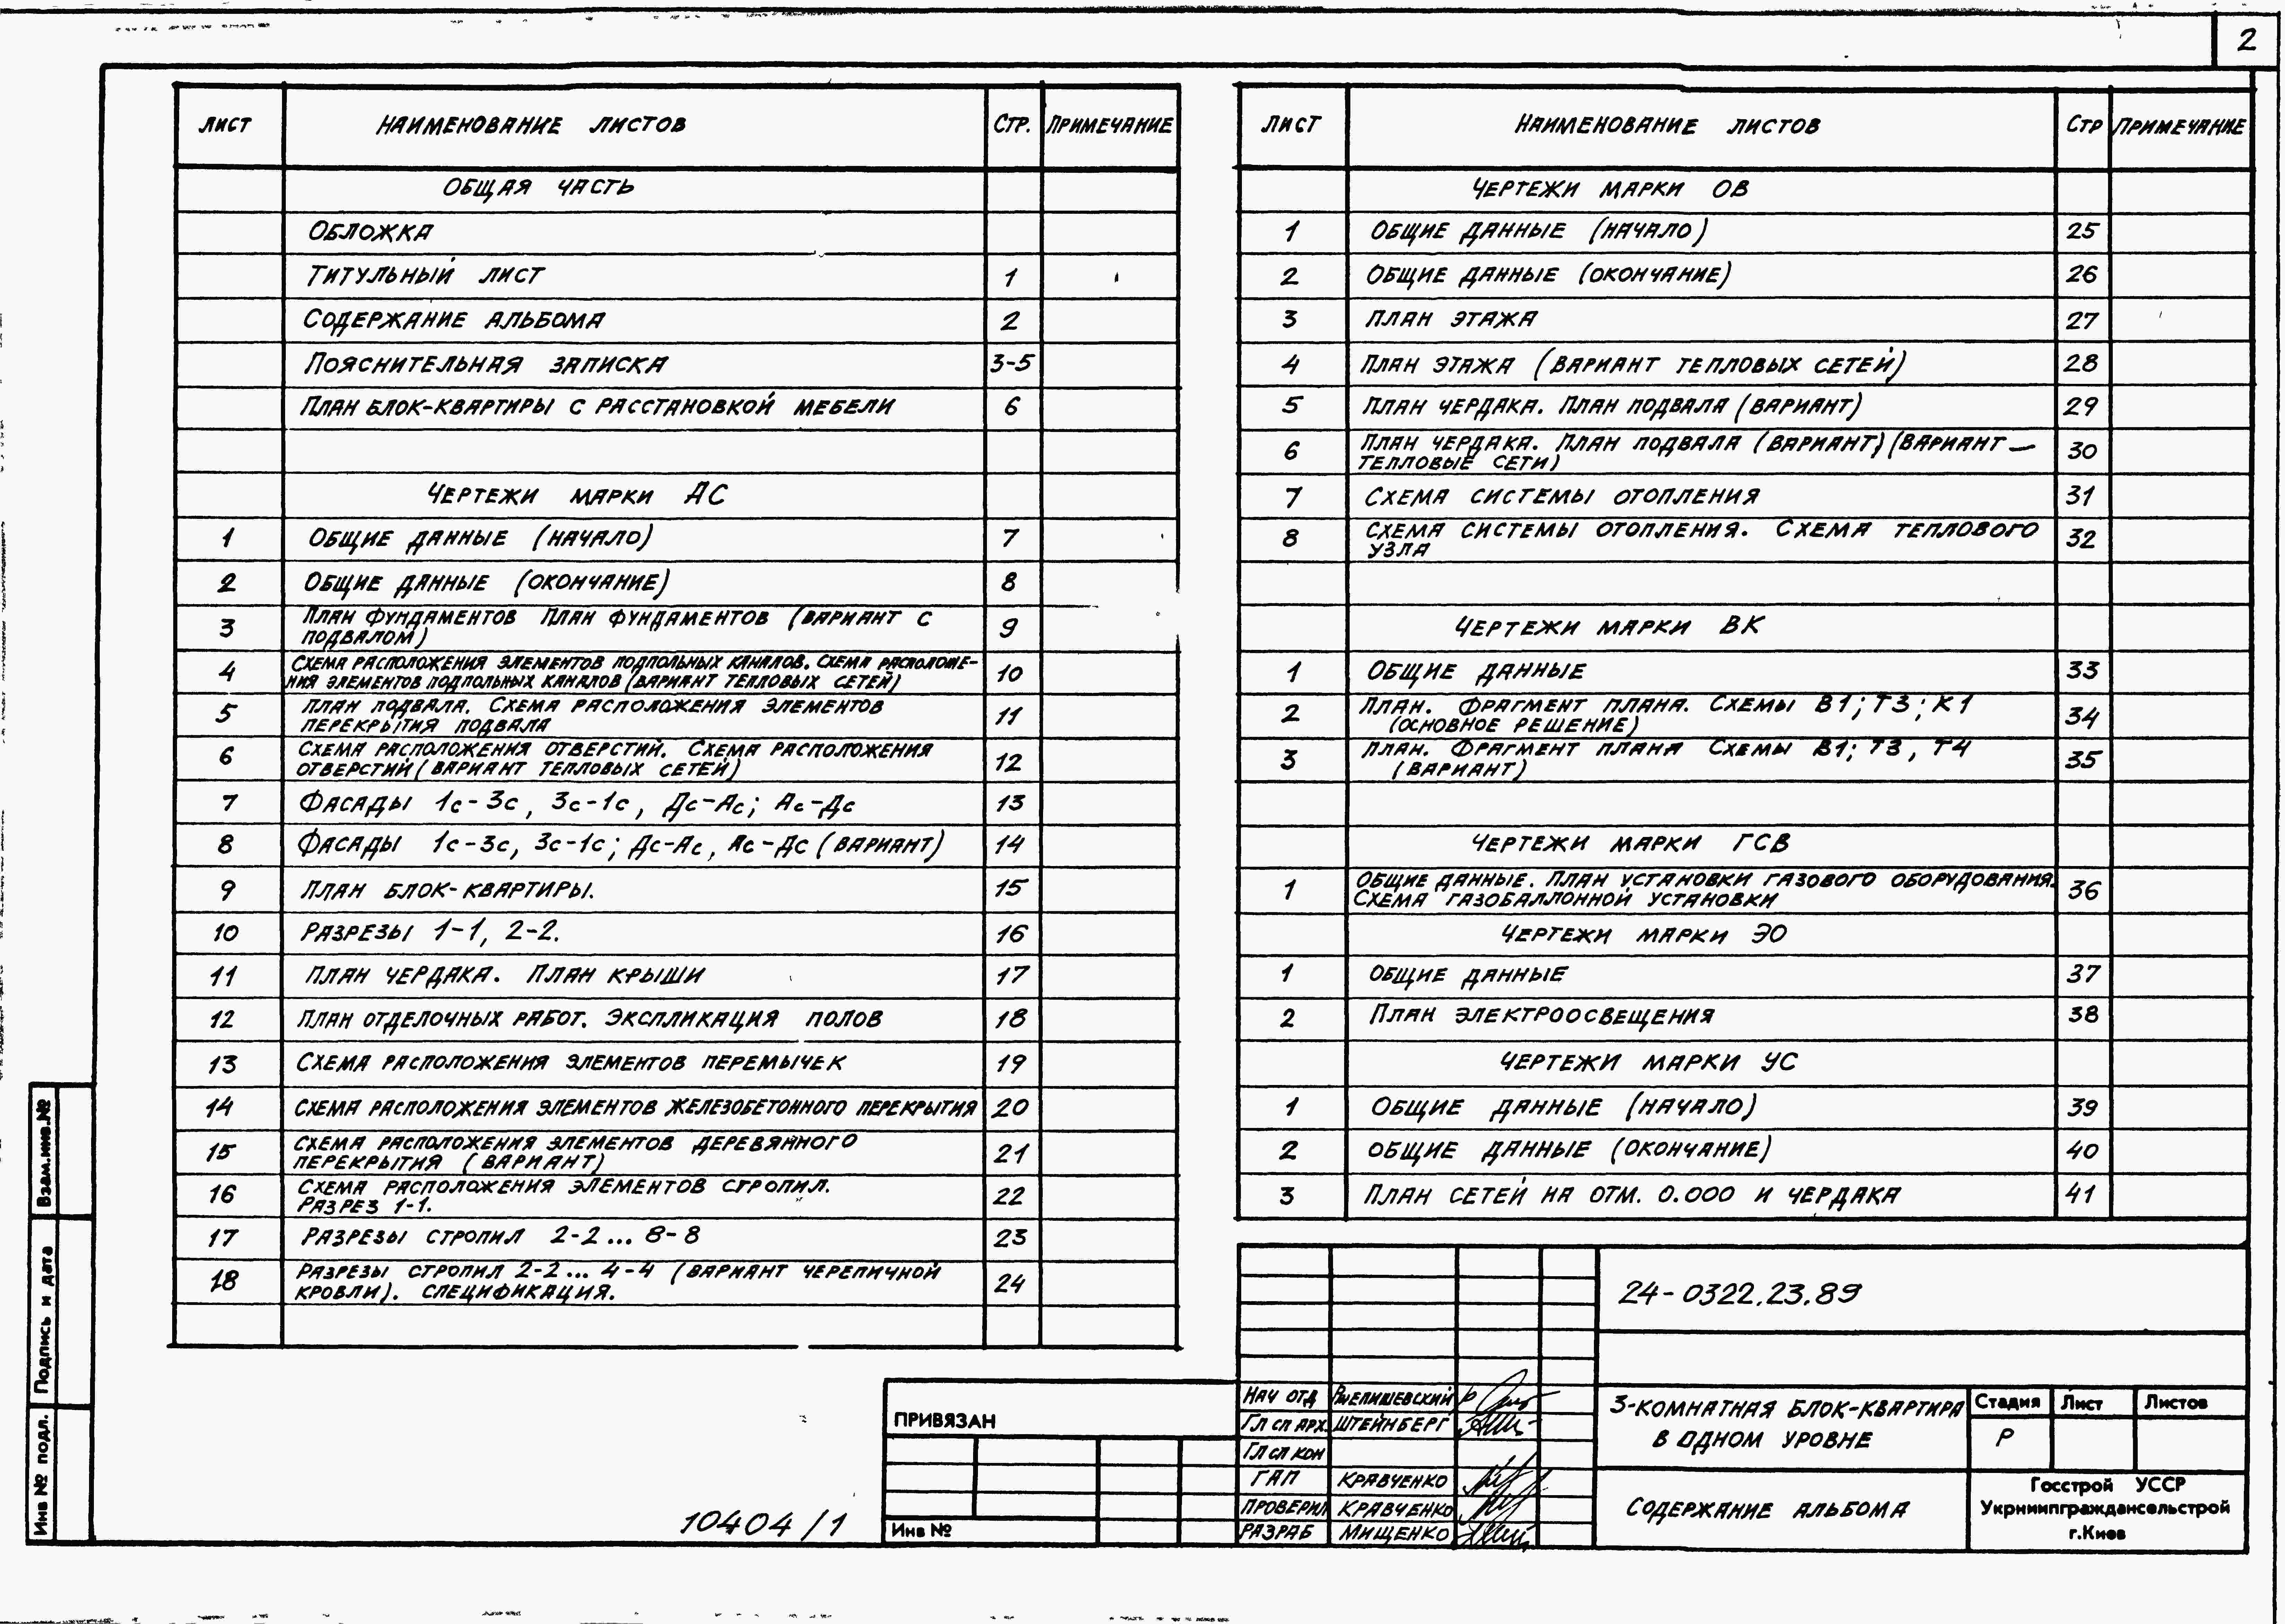 2
ЛИСТ НАИМЕНОВАНИЕ ЛИСТОВ СТР. ПРИМЕЧАНИЕ
ОБЩАЯ ЧАСТЬ
ОБЛОЖКА
ТИТУЛЬНЫЙ ЛИСТ 1
СОДЕРЖАНИЕ АЛЬБОМА 2
ПОЯСНИТЕЛЬНАЯ ЗАПИСКА 3-5
ПЛАН БЛОК-КВАРТИРЫ С РАССТАНОВКОЙ МЕБЕЛИ 6
ЧЕРТЕЖИ МАРКИ АС
1 ОБЩИЕ ДАННЫЕ (НАЧАЛО) 7
2 ОБЩИЕ ДАННЫЕ (ОКОНЧАНИЕ) 8
3 ПЛАН ФУНДАМЕНТОВ ПЛАН ФУНДАМЕНТОВ (ВАРИАНТ С
ПОДВАЛОМ) 9
4 СХЕМА РАСПОЛОЖЕНИЯ ЭЛЕМЕНТОВ ПОДПОЛЬНЫХ КАНАЛОВ. СХЕМА РАСПОЛОЖЕ-
НИЯ ЭЛЕМЕНТОВ ПОДПОЛЬНЫХ КАНАЛОВ (ВАРИАНТ ТЕПЛОВЫХ СЕТЕЙ) 10
5 ПЛАН ПОДВАЛА. СХЕМА РАСПОЛОЖЕНИЯ ЭЛЕМЕНТОВ
ПЕРЕКРЫТИЯ ПОДВАЛА 11
6 СХЕМА РАСПОЛОЖЕНИЯ ОТВЕРСТИЙ. СХЕМА РАСПОЛОЖЕНИЯ
ОТВЕРСТИЙ (ВАРИАНТ ТЕПЛОВЫХ СЕТЕЙ) 12
7 ФАСАДЫ 1с-3с, 3с-1с, Дс-Ас; Ас-Дс 13
8 ФАСАДЫ 1с-3с, 3с-1с; Дс-Ас, Ас-Дс (ВАРИАНТ) 14
9 ПЛАН БЛОК-КВАРТИРЫ. 15
10 РАЗРЕЗЫ 1-1, 2-2. 16
11 ПЛАН ЧЕРДАКА. ПЛАН КРЫШИ 17
12 ПЛАН ОТДЕЛОЧНЫХ РАБОТ. ЭКСПЛИКАЦИЯ ПОЛОВ 18
13 СХЕМА РАСПОЛОЖЕНИЯ ЭЛЕМЕНТОВ ПЕРЕМЫЧЕК 19
14 СХЕМА РАСПОЛОЖЕНИЯ ЭЛЕМЕНТОВ ЖЕЛЕЗОБЕТОННОГО ПЕРЕКРЫТИЯ 20
15 СХЕМА РАСПОЛОЖЕНИЯ ЭЛЕМЕНТОВ ДЕРЕВЯННОГО
ПЕРЕКРЫТИЯ (ВАРИАНТ) 21
16 СХЕМА РАСПОЛОЖЕНИЯ ЭЛЕМЕНТОВ СТРОПИЛ.
РАЗРЕЗ 1-1. 22
17 РАЗРЕЗЫ СТРОПИЛ 2-2... 8-8 23
18 РАЗРЕЗЫ СТРОПИЛ 2-2... 4-4 (ВАРИАНТ ЧЕРЕПИЧНОЙ
КРОВЛИ). СПЕЦИФИКАЦИЯ. 24
ЛИСТ НАИМЕНОВАНИЕ ЛИСТОВ СТР ПРИМЕЧАНИЕ
ЧЕРТЕЖИ МАРКИ ОВ
1 ОБЩИЕ ДАННЫЕ (НАЧАЛО) 25
2 ОБЩИЕ ДАННЫЕ (ОКОНЧАНИЕ) 26
3 ПЛАН ЭТАЖА 27
4 ПЛАН ЭТАЖА (ВАРИАНТ ТЕПЛОВЫХ СЕТЕЙ) 28
5 ПЛАН ЧЕРДАКА. ПЛАН ПОДВАЛА (ВАРИАНТ) 29
6 ПЛАН ЧЕРДАКА. ПЛАН ПОДВАЛА (ВАРИАНТ) (ВАРИАНТ —
ТЕПЛОВЫЕ СЕТИ) 30
7 СХЕМА СИСТЕМЫ ОТОПЛЕНИЯ 31
8 СХЕМА СИСТЕМЫ ОТОПЛЕНИЯ. СХЕМА ТЕПЛОВОГО
УЗЛА 32
ЧЕРТЕЖИ МАРКИ ВК
1 ОБЩИЕ ДАННЫЕ 33
2 ПЛАН. ФРАГМЕНТ ПЛАНА. СХЕМЫ В1; Т3; К1
(ОСНОВНОЕ РЕШЕНИЕ) 34
3 ПЛАН. ФРАГМЕНТ ПЛАНА СХЕМЫ В1; Т3, Т4
(ВАРИАНТ) 35
ЧЕРТЕЖИ МАРКИ ГСВ
1 ОБЩИЕ ДАННЫЕ. ПЛАН УСТАНОВКИ ГАЗОВОГО ОБОРУДОВАНИЯ.
СХЕМА ГАЗОБАЛЛОННОЙ УСТАНОВКИ 36
ЧЕРТЕЖИ МАРКИ ЭО
1 ОБЩИЕ ДАННЫЕ 37
2 ПЛАН ЭЛЕКТРООСВЕЩЕНИЯ 38
ЧЕРТЕЖИ МАРКИ УС
1 ОБЩИЕ ДАННЫЕ (НАЧАЛО) 39
2 ОБЩИЕ ДАННЫЕ (ОКОНЧАНИЕ) 40
3 ПЛАН СЕТЕЙ НА ОТМ. 0.000 И ЧЕРДАКА 41
24-0322.23.89
НАЧ ОТД
ГЛ СП АРХ. ШТЕЙНБЕРГ
ГЛ СП КОН
ГАП КРАВЧЕНКО
ПРОВЕРИЛ КРАВЧЕНКО
РАЗРАБ МИЩЕНКО
3-КОМНАТНАЯ БЛОК-КВАРТИРА
В ОДНОМ УРОВНЕ
Стадия Лист Листов
Р
СОДЕРЖАНИЕ АЛЬБОМА
Госстрой УССР
Укрниипграждансельстрой
г.Киев
ПРИВЯЗАН
Инв №
10404/1
Взам.инв.№
Подпись и дата
Инв № подл.